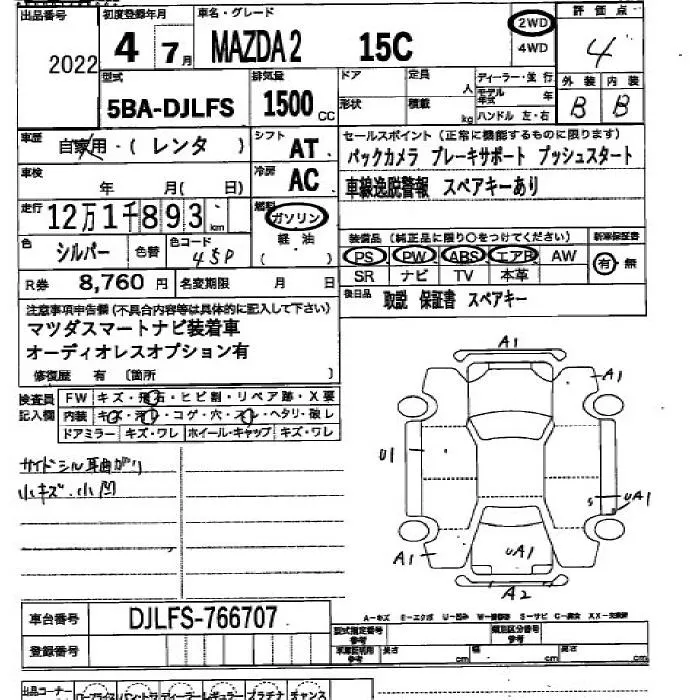 出品番号 2022
初度登録年月 4年 7月
車名・グレード MAZDA2 15C
2WD
4WD
評価点 4
外装 内装
B B
型式 5BA-DJLFS
排気量 1500 CC
ドア 定員 人
形状 積載 kg
ディーラー・並行
モデル年式 年
ハンドル 左・右
車歴 自家用・(レンタ)
シフト AT
冷房 AC
車検 年 月(日)
走行 12万1千893 km
燃料 ガソリン
軽油
( )
色 シルバー 色替 色コード 45P
R券 8,760円 名変期限 月 日
セールスポイント(正常に機能するものに限ります)
バックカメラ ブレーキサポート プッシュスタート
車線逸脱警報 スペアキーあり
装備品(純正品に限り○をつけてください)
PS PW ABS エアB AW
SR ナビ TV 本革
新車保証書
有・無
後日品 取説 保証書 スペアキー
注意事項申告欄(不具合内容等は具体的に記入して下さい)
マツダスマートナビ装着車
オーディオレスオプション有
修復歴 有 〔箇所 〕
検査員記入欄
FW キズ・飛石・ヒビ割・リペア跡・X要
内装 キズ・汚レ・コゲ・穴・スレ・ヘタリ・破レ
ドアミラー キズ・ワレ ホイール・キャップ キズ・ワレ
サイドシル耳曲がり
小キズ・小凹
A1
A1
U1
S UA1
UA1
A1
A2
車台番号 DJLFS-766707
登録番号
A−キズ E−エクボ U−凹ミ S−サビ C−腐食
型式指定番号 参考
類別区分番号 参考
参考 長さ cm 幅 cm 高さ cm
出品コーナー